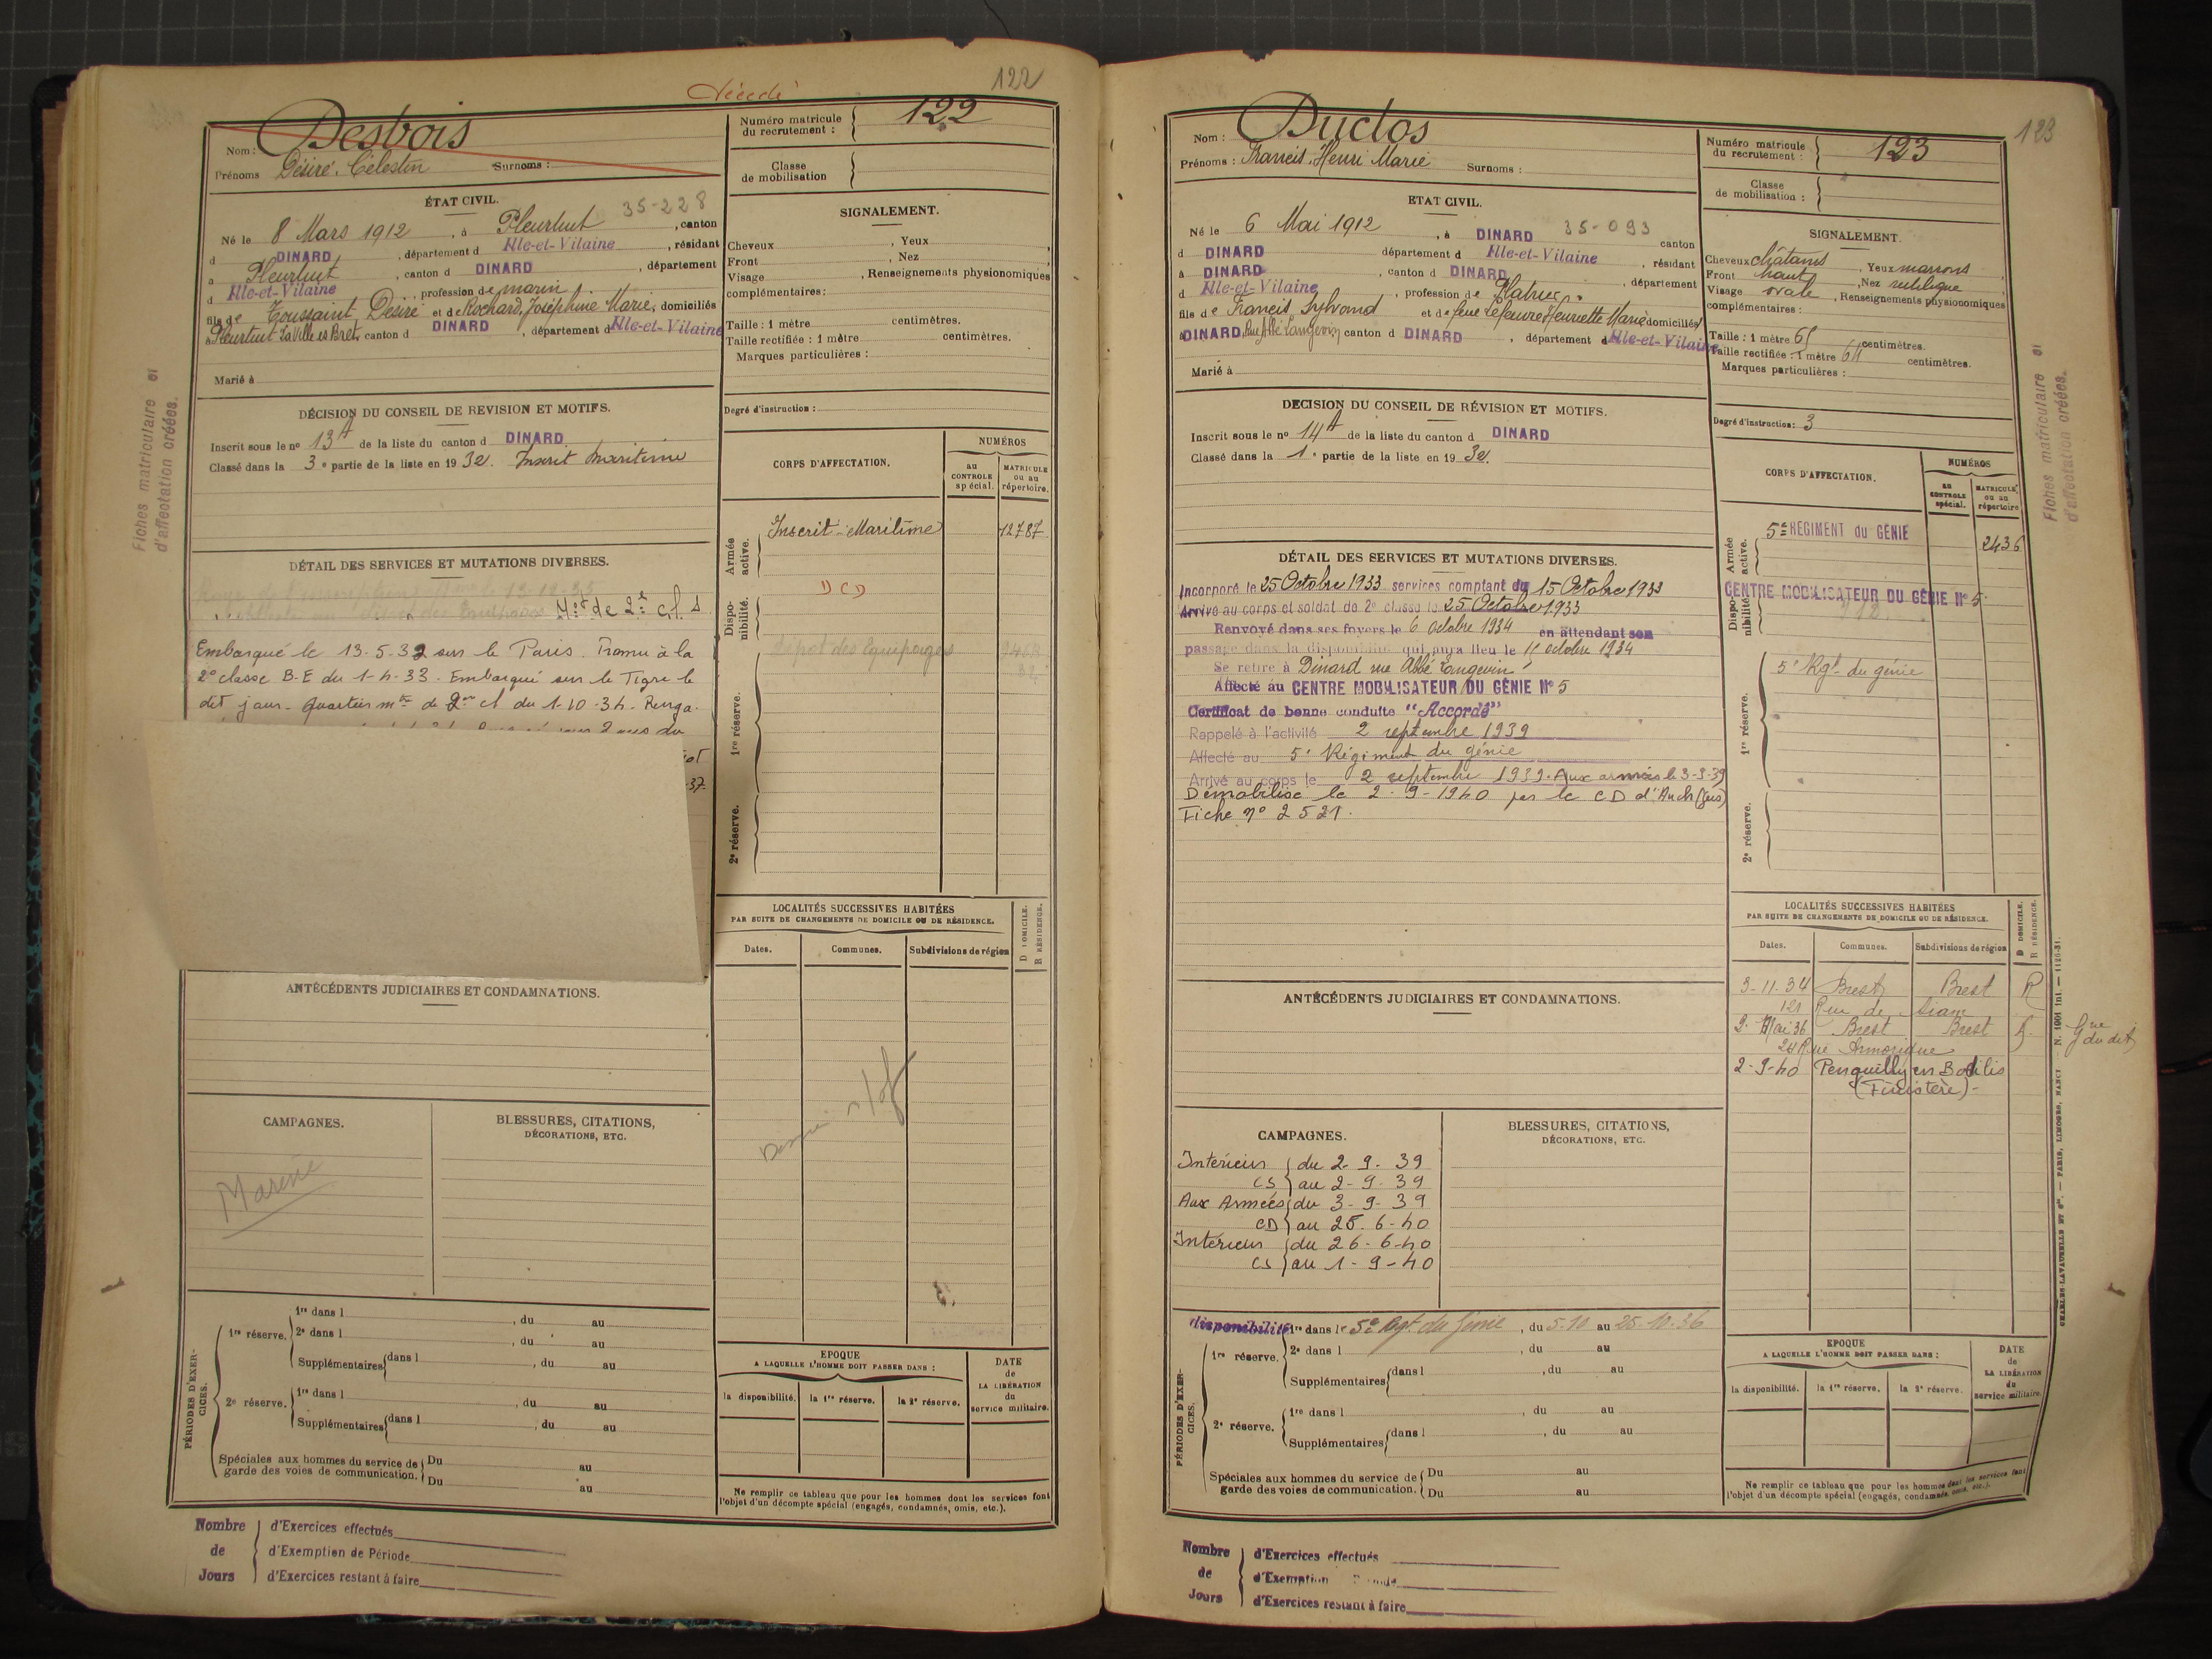 Décédé
122
Nom : Desbois
Prénoms Désiré, Célestin Surnoms :
Numéro matricule du recrutement : 122
Classe de mobilisation
ÉTAT CIVIL.
35-228
Né le 8 Mars 1912, à Pleurtuit, canton
d DINARD, département d Ille-et-Vilaine, résidant
à Pleurtuit, canton d DINARD, département
d Ille-et-Vilaine, profession de marin
fils de Toussaint, Désiré et de Rochard, Joséphine Marie, domiciliés
à Pleurtuit La Ville es Bret, canton d DINARD, département d Ille-et-Vilaine
Marié à
SIGNALEMENT.
Cheveux, Yeux
Front, Nez
Visage, Renseignements physionomiques
complémentaires :
Taille : 1 mètre centimètres.
Taille rectifiée : 1 mètre centimètres.
Marques particulières :
Degré d'instruction :
DÉCISION DU CONSEIL DE REVISION ET MOTIFS.
Inscrit sous le nº 13 A de la liste du canton d DINARD
Classé dans la 3e partie de la liste en 1932. Inscrit Maritime
CORPS D'AFFECTATION.
NUMÉROS
au CONTROLE spécial.
MATRICULE ou au répertoire.
Armée active.
Inscrit Maritime 12787
Disponibilité.
DCD
dépôt des Equipages
1re réserve.
2e réserve.
DÉTAIL DES SERVICES ET MUTATIONS DIVERSES.
Mot de 2e cl s
Embarqué le 13-5-32 sur le Paris. Promu à la
2e classe B.E du 1-4-33. Embarqué sur le Tigre le
dit jour. Quartier mtre de 2me cl du 1-10-34. Renga.
2 ans du
37.
Fiches matriculaire et
d'affectation créées.
LOCALITÉS SUCCESSIVES HABITÉES
PAR SUITE DE CHANGEMENTS DE DOMICILE OU DE RÉSIDENCE.
D DOMICILE.
R RÉSIDENCE.
Dates.
Communes.
Subdivisions de région
ANTÉCÉDENTS JUDICIAIRES ET CONDAMNATIONS.
CAMPAGNES.
Marine
BLESSURES, CITATIONS,
DÉCORATIONS, ETC.
PÉRIODES D'EXERCICES.
1re réserve. 1re dans l, du au
2e dans l, du au
Supplémentaires dans l, du au
2e réserve. 1re dans l, du au
Supplémentaires dans l, du au
Spéciales aux hommes du service de garde des voies de communication. Du au
Du au
EPOQUE
A LAQUELLE L'HOMME DOIT PASSER DANS :
la disponibilité.
la 1re réserve.
la 2e réserve.
DATE de LA LIBÉRATION du service militaire.
Ne remplir ce tableau que pour les hommes dont les services font
l'objet d'un décompte spécial (engagés, condamnés, omis, etc.).
Nombre de Jours
d'Exercices effectués
d'Exemption de Période
d'Exercices restant à faire
123
Nom : Duclos
Prénoms : Francis, Henri Marie Surnoms :
Numéro matricule du recrutement : 123
Classe de mobilisation :
ETAT CIVIL.
Né le 6 Mai 1912, à DINARD 35-093 canton
d DINARD département d Ille-et-Vilaine, résidant
à DINARD, canton d DINARD, département
d Ille-et-Vilaine, profession de Platrier
fils de Francis, Sylvand et de feue Lefeuvre Henriette Marie domiciliés
à DINARD, Rue Abbé Langevin canton d DINARD, département d Ille-et-Vilaine
Marié à
SIGNALEMENT.
Cheveux châtains, Yeux marrons
Front haut, Nez rectiligne
Visage ovale, Renseignements physionomiques
complémentaires :
Taille : 1 mètre 61 centimètres.
Taille rectifiée : 1 mètre 61 centimètres.
Marques particulières :
Degré d'instruction : 3
DECISION DU CONSEIL DE RÉVISION ET MOTIFS.
Inscrit sous le nº 14 A de la liste du canton d DINARD
Classé dans la 1e partie de la liste en 1932.
CORPS D'AFFECTATION.
NUMÉROS
au CONTROLE spécial.
MATRICULE ou au répertoire
Armée active.
5e RÉGIMENT du GÉNIE 2436
Disponibilité.
CENTRE MOBILISATEUR DU GÉNIE Nº 5
1re réserve.
5e Rgt du génie
2e réserve.
DÉTAIL DES SERVICES ET MUTATIONS DIVERSES.
Incorporé le 25 Octobre 1933 services comptant du 15 Octobre 1933
Arrivé au corps et soldat de 2e classe le 25 Octobre 1933
Renvoyé dans ses foyers le 6 octobre 1934 en attendant son
passage dans la disponibilité qui aura lieu le 15 octobre 1934
Se retire à Dinard rue Abbé Langevin
Affecté au CENTRE MOBILISATEUR DU GÉNIE Nº 5
Certificat de bonne conduite "Accordé"
Rappelé à l'activité 2 septembre 1939
Affecté au 5e Régiment du génie
Arrivé au corps le 2 septembre 1939. Aux armées le 3-9-39
Démobilisé le 2-9-1940 par le CD d'Auch (Gers)
Fiche nº 2521.
Fiches matriculaire et
d'affectation créées.
LOCALITÉS SUCCESSIVES HABITÉES
PAR SUITE DE CHANGEMENTS DE DOMICILE OU DE RÉSIDENCE.
D DOMICILE.
R RÉSIDENCE.
Dates.
Communes.
Subdivisions de région
3-11-34 Brest Brest R
121 Rue de Siam
2 Mai 36 Brest Brest
24 Rue Armorique
2-9-40 Penquilly en Bodilis
(Finistère)-
ANTÉCÉDENTS JUDICIAIRES ET CONDAMNATIONS.
CAMPAGNES.
Intérieur du 2-9-39
CS au 2-9-39
Aux Armées du 3-9-39
CD au 25-6-40
Intérieur du 26-6-40
CS au 1-9-40
BLESSURES, CITATIONS,
DÉCORATIONS, ETC.
PÉRIODES D'EXERCICES.
disponibilité 1re dans le 5e Rgt du Génie, du 5.10 au 25.10.36
1re réserve. 2e dans l, du au
Supplémentaires dans l, du au
2e réserve. 1re dans l, du au
Supplémentaires dans l, du au
Spéciales aux hommes du service de garde des voies de communication. Du au
Du au
EPOQUE
A LAQUELLE L'HOMME DOIT PASSER DANS :
la disponibilité.
la 1re réserve.
la 2e réserve.
DATE de LA LIBÉRATION du service militaire.
Ne remplir ce tableau que pour les hommes dont les services font
l'objet d'un décompte spécial (engagés, condamnés, omis, etc.).
CHARLES-LAVAUZELLE ET Cie. — PARIS, LIMOGES, NANCY
Nombre de Jours
d'Exercices effectués
d'Exemption
d'Exercices restant à faire